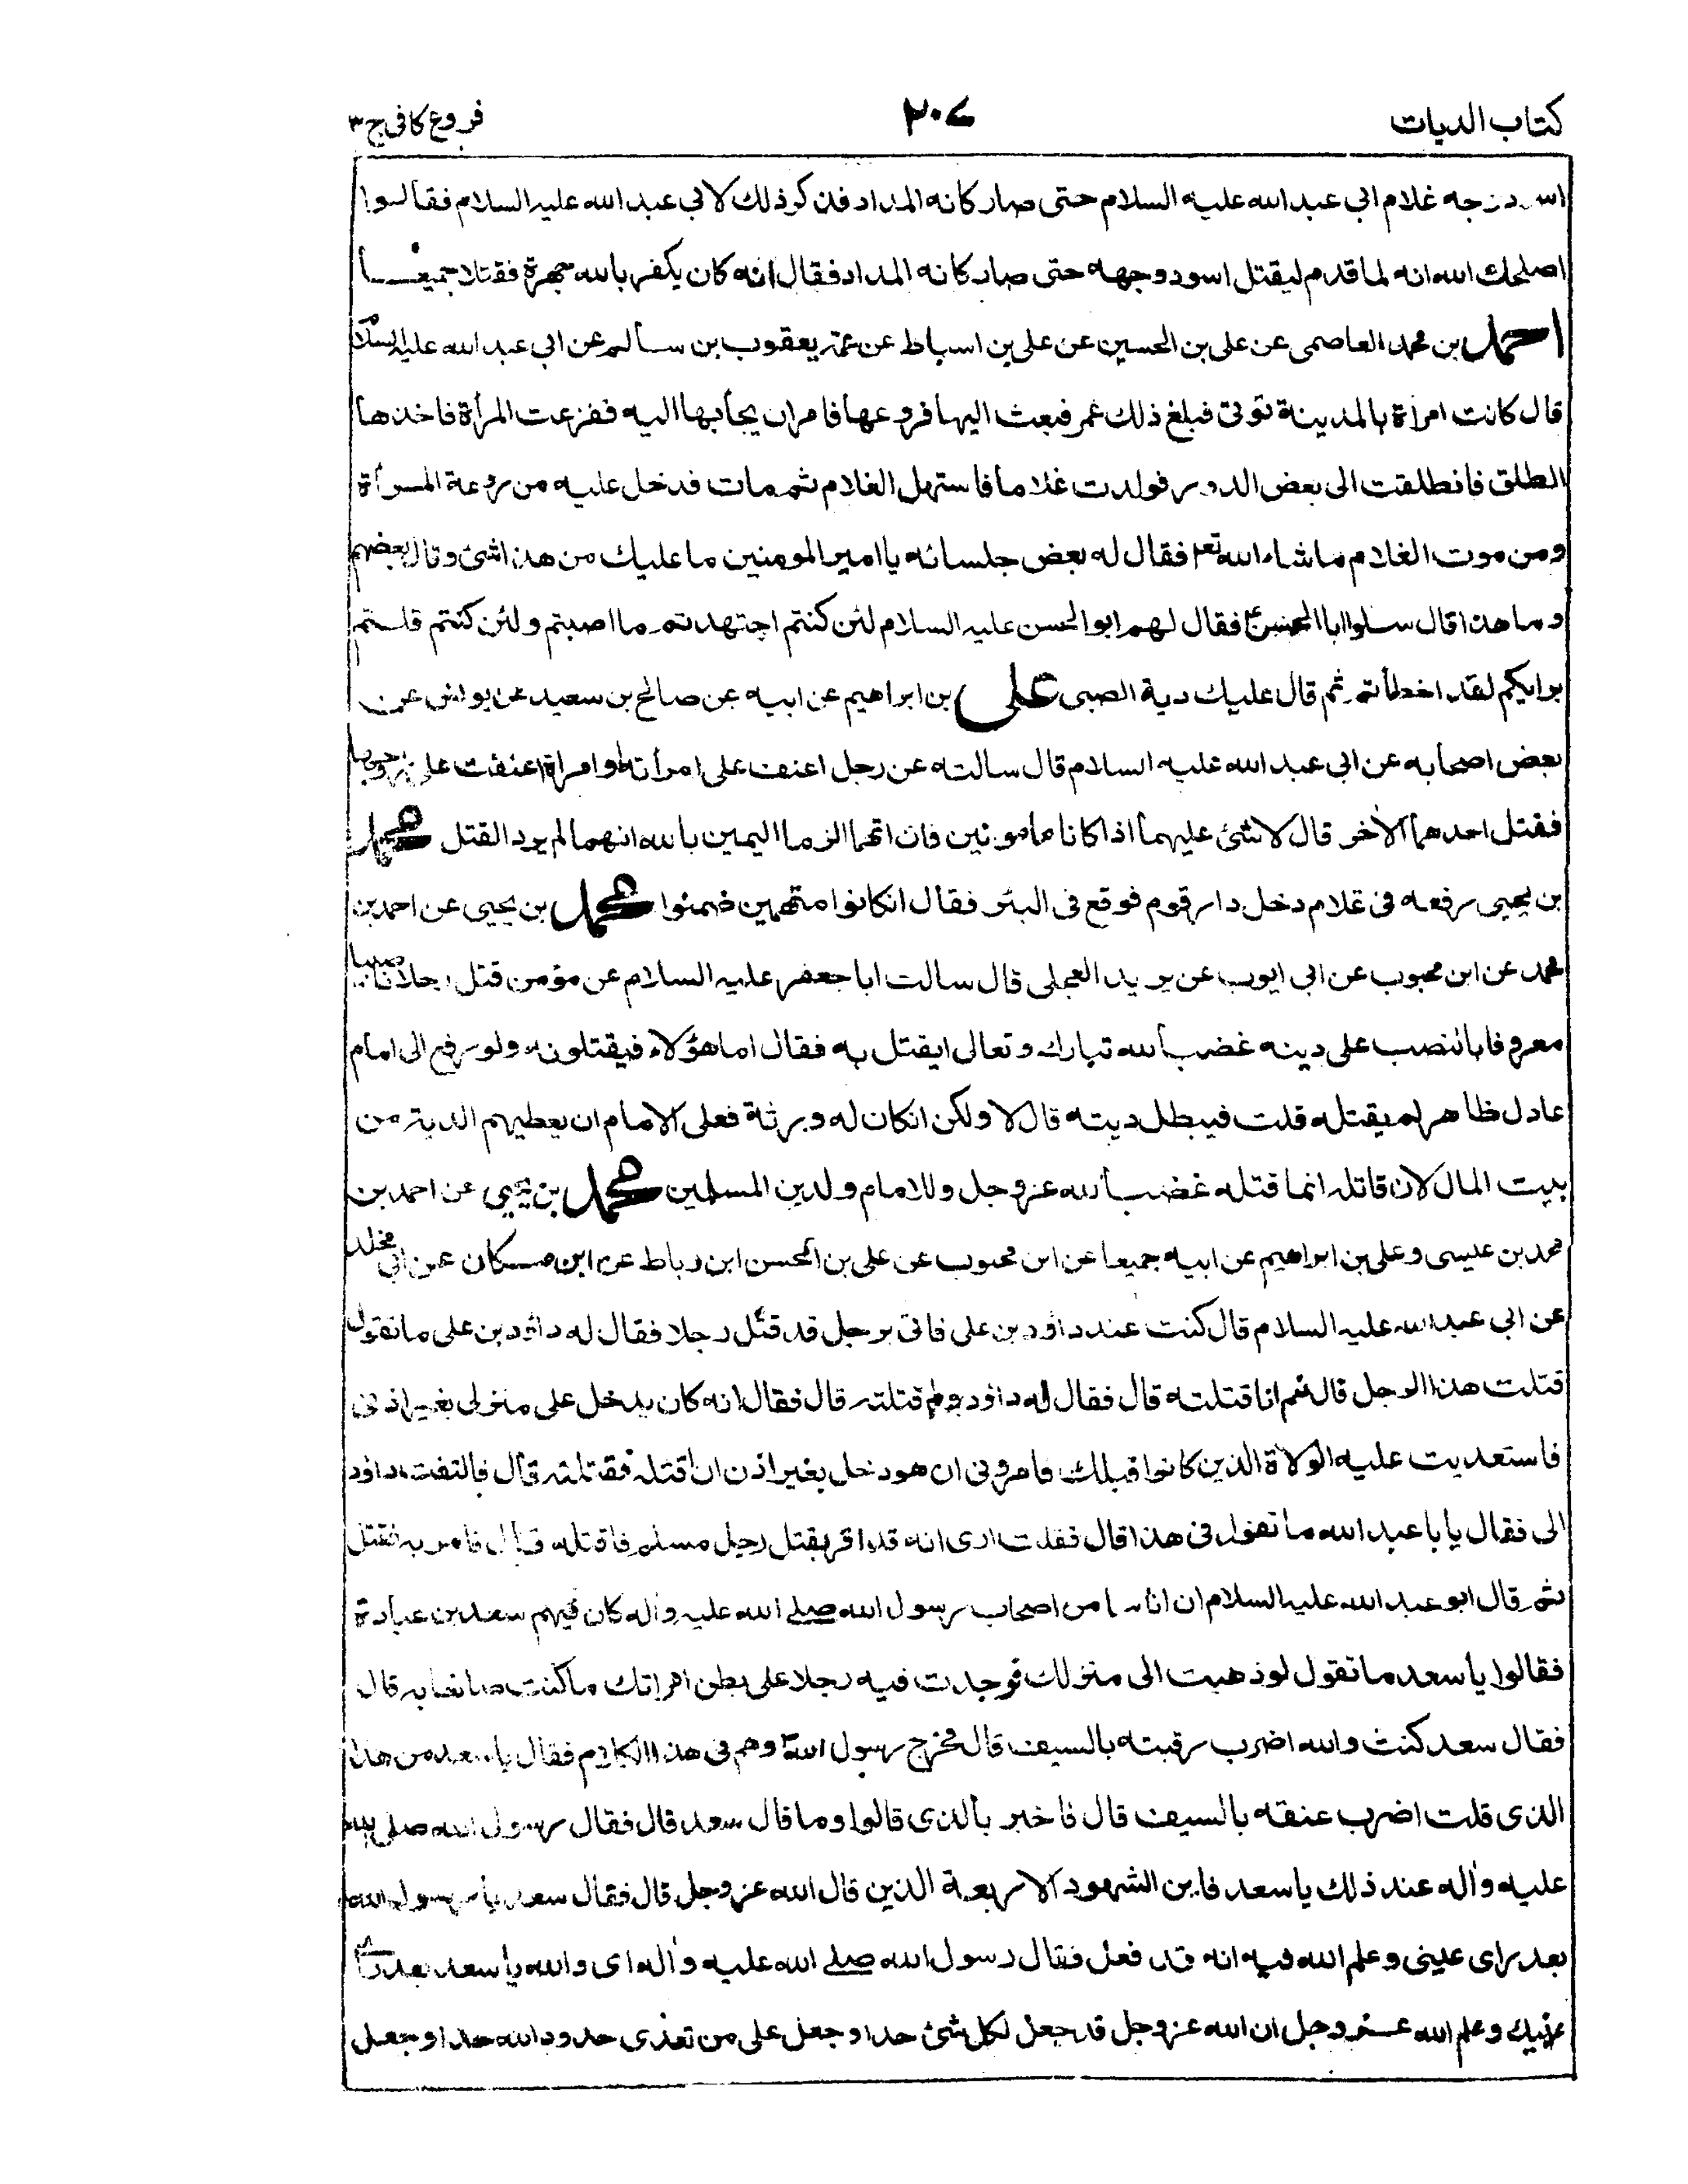 كتاب الديات ٢٠٧ فروع كافى ج ٣
اسود وجه غلام ابي عبد الله عليه السلام حتى صار كانه المداد فذكر ذلك لابي عبد الله عليه السلام فقالوا
اصلحك الله انه لما قدم ليقتل اسود وجهه حتى صار كانه المداد فقال انه كان يكفر بالله جهرة فقتلا جميعا
احمد بن محمد العاصمى عن على بن الحسين عن على بن اسباط عن عمه يعقوب بن سالم عن ابي عبد الله عليه السلام
قال كانت امرأة بالمدينة توتى فبلغ ذلك عمر فبعث اليها فروعها فامر ان يجأ بها اليه ففزعت المرأة فاخذها
الطلق فانطلقت الى بعض الدور فولدت غلاما فاستهل الغلام ثم مات فدخل عليه من روعة المرأة
ومن موت الغلام ما شاء الله تعالى فقال له بعض جلسائه يا امير المومنين ما عليك من هذا شئ وقال بعضهم
وما هذا قال سلوا ابا الحسن ع فقال لهم ابو الحسن عليه السلام لئن كنتم اجتهدتم ما اصبتم ولئن كنتم قلتم
برايكم لقد اخطأتم ثم قال عليك دية الصبى على بن ابراهيم عن ابيه عن صالح بن سعيد عن يونس عن
بعض اصحابه عن ابي عبد الله عليه السلام قال سالته عن رجل اعنف على امرأته او امرأة اعنفت على زوجها
فقتل احدهما الأخر قال لا شئ عليهما اذا كانا مامونين فان اتهما الزما اليمين بالله انهما لم يرد القتل محمد
بن يحيى رفعه فى غلام دخل دار قوم فوقع فى البئر فقال انكانوا متهمين ضمنوا محمد بن يحيى عن احمد بن
محمد عن ابن محبوب عن ابي ايوب عن بريد العجلى قال سالت ابا جعفر عليه السلام عن مؤمن قتل رجلا ناصبيا
معروفا بالنصب على دينه غضبا لله تبارك وتعالى ايقتل به فقال اما هؤلاء فيقتلونه ولو رفع الى امام
عادل ظاهر لم يقتله قلت فيبطل ديته قال لا ولكن انكان له ورثة فعلى الامام ان يعطيهم الدية من
بيت المال لان قاتله انما قتله غضبا لله عز وجل وللامام ولدين المسلمين محمد بن يحيى عن احمد بن
محمد بن عيسى وعلى بن ابراهيم عن ابيه جميعا عن ابن محبوب عن على بن الحسن ابن رباط عن ابن مسكان عن ابي مخلد
عن ابي عبد الله عليه السلام قال كنت عند داؤد بن على فاتى برجل قد قتل رجلا فقال له داؤد بن على ما تقول
قتلت هذا الرجل قال نعم انا قتلته قال فقال له داؤد ولم قتلته قال فقال انه كان يدخل على منزلى بغير اذنى
فاستعديت عليه الولاة الذين كانوا قبلك فامرونى ان هو دخل بغير اذن ان اقتله فقتلته قال فالتفت داؤد
الى فقال يا با عبد الله ما تقول فى هذا قال فقلت ارى انه قد اقر بقتل رجل مسلم فاقتله قال فامر به فقتل
ثم قال ابو عبد الله عليه السلام ان اناسا من اصحاب رسول الله صلى الله عليه واله كان فيهم سعد بن عبادة
فقالوا يا سعد ما تقول لو ذهبت الى منزلك فوجدت فيه رجلا على بطن امراتك ما كنت صانعا به قال
فقال سعد كنت والله اضرب رقبته بالسيف قال فخرج رسول الله وهم فى هذا الكلام فقال يا سعد من هذا
الذى قلت اضرب عنقه بالسيف قال فاخبر بالذى قالوا وما قال سعد قال فقال رسول الله صلى الله
عليه واله عند ذلك يا سعد فاين الشهود الاربعة الذين قال الله عز وجل قال فقال سعد يا رسول الله
بعد راى عينى وعلم الله فيه انه قد فعل فقال رسول الله صلى الله عليه واله اى والله يا سعد بعد راى
عينيك وعلم الله عز وجل ان الله عز وجل قد جعل لكل شئ حدا وجعل على من تعدى حدود الله حدا وجعل